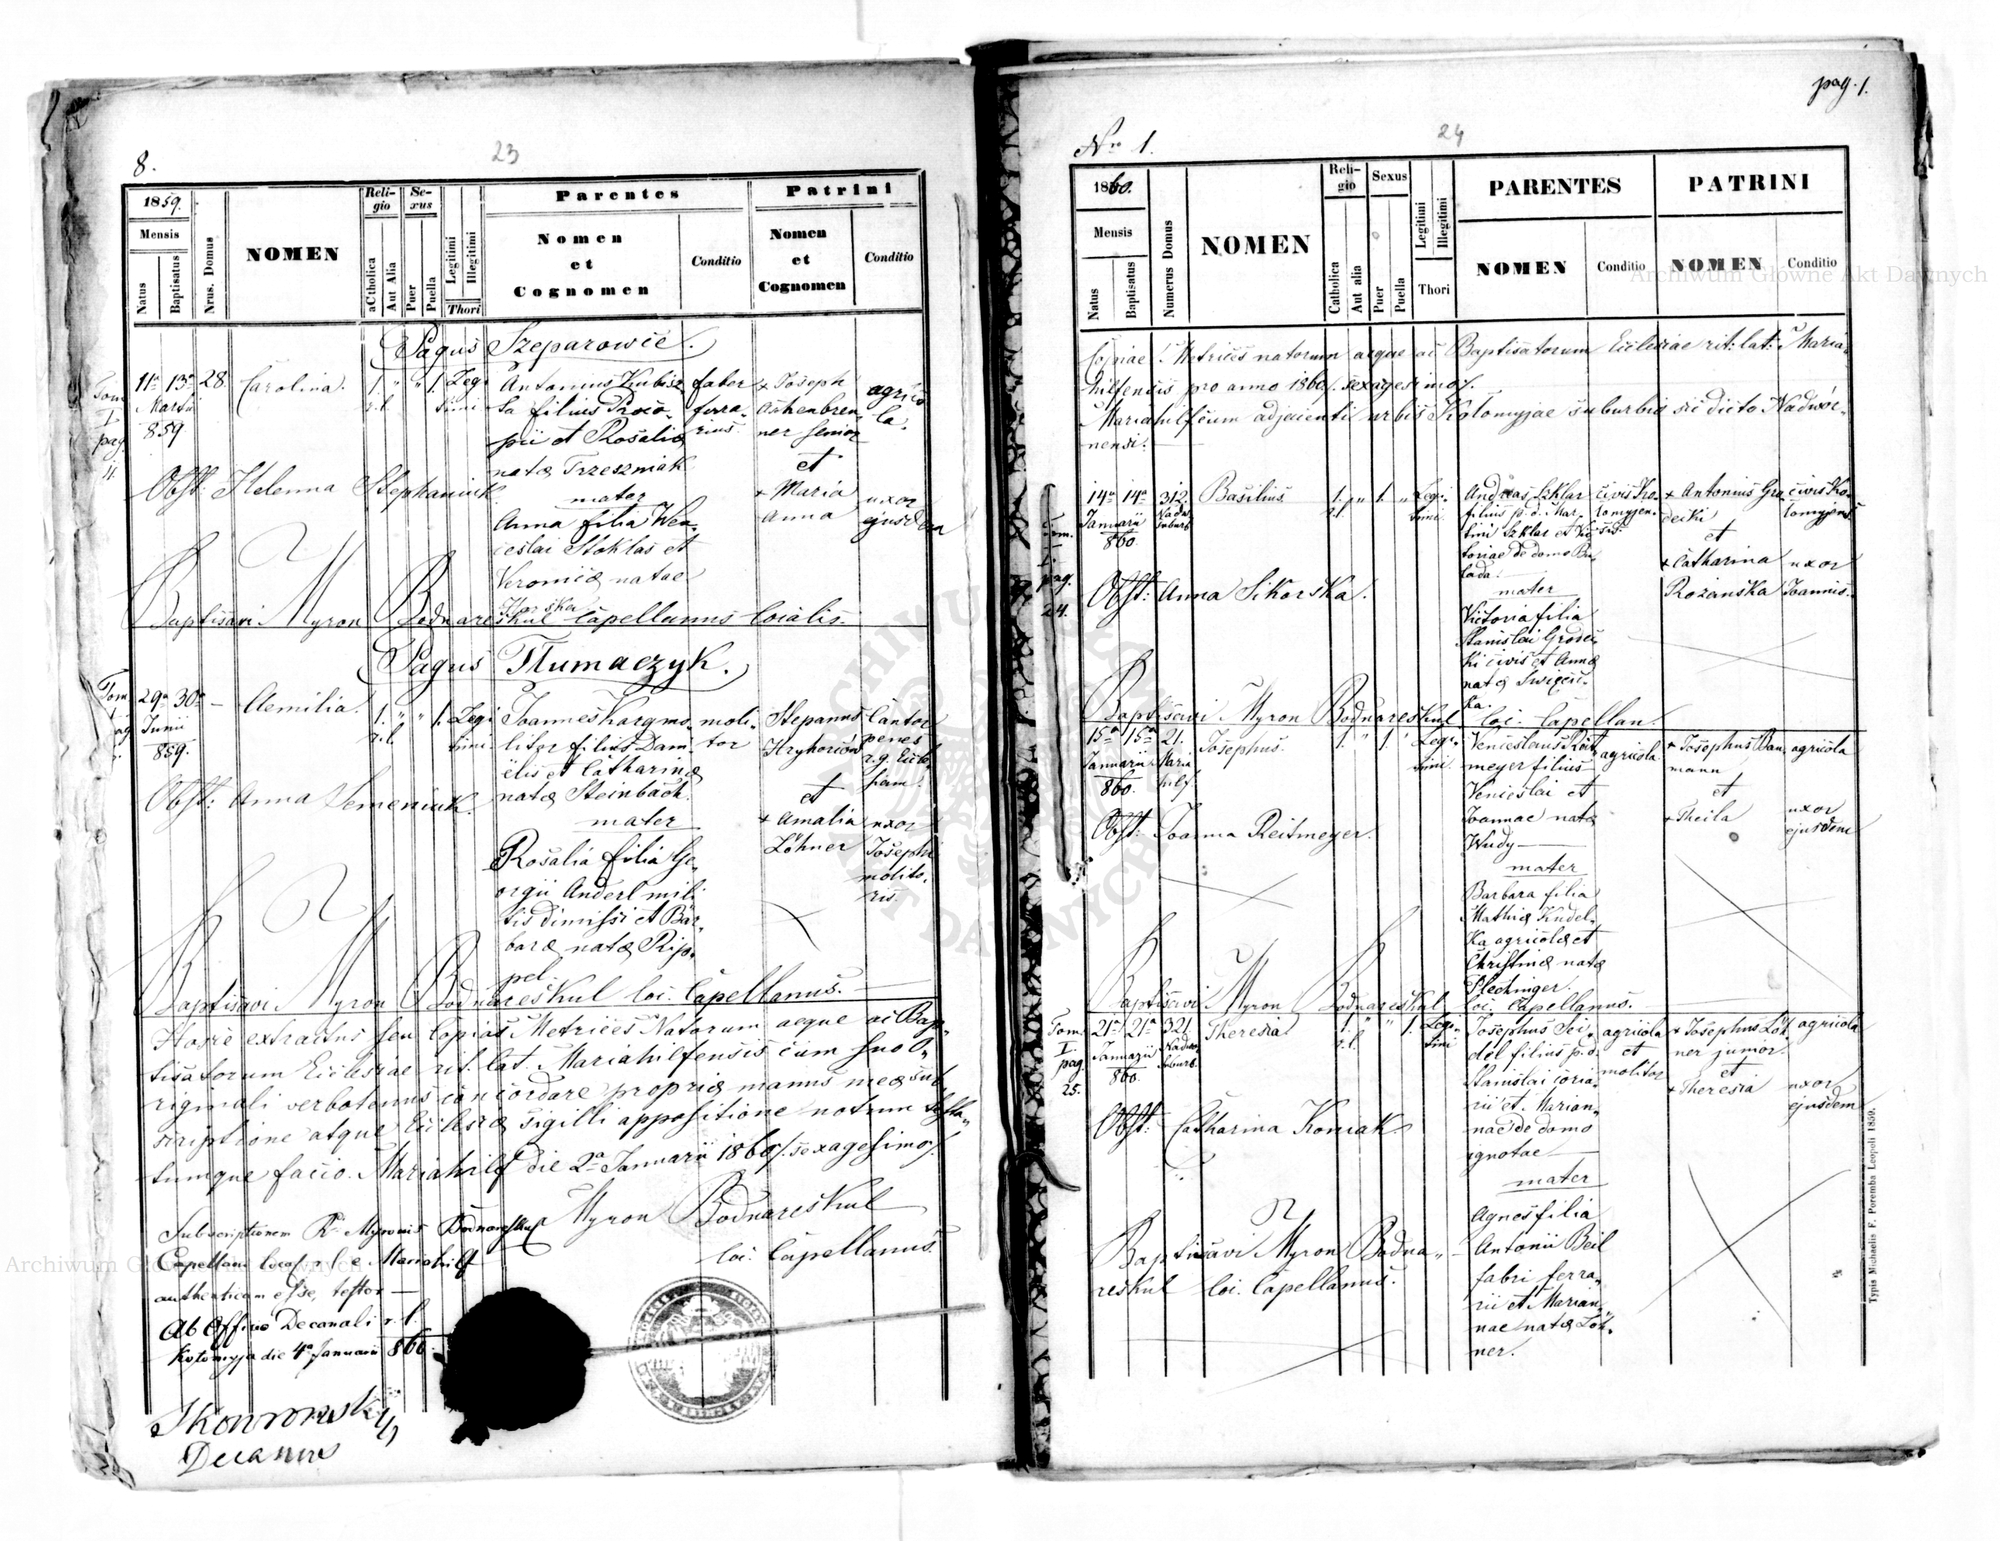 8.
23
1859.
Mensis
Natus
Baptisatus
Nrus. Domus
NOMEN
Religio
aCtholica
Aut Alia
Sexus
Puer
Puella
Legitimi
Illegitimi
Thori
Parentes
Nomen
et
Cognomen
Conditio
Patrini
Nomen
et
Cognomen
Conditio
Pagus Szeparowce.
Tom
I
pag.
4.
11a 13a 28. Carolina. 1. " " 1. Legi
r.l. timi
Martii
859.
Antonius Kubis
sa filius Proco
pii et Rosaliæ
natæ Trzeszniak
mater
Anna filia Wen
ceslai Stoklas et
Veronicæ natae
Horska
faber
ferra
rius.
+ Joseph
Aschenbren
ner senior
et
+ Maria
Anna
agrico
la.
uxor
ejusdem
Obst: Helenna Stephaniuk
Baptisavi Myron Bodnareskul Capellanus localis.
Pagus Tłumaczyk.
Tom
29a 30a — Aemilia. 1. " " 1. Legi
r.l. timi
Junii
859.
Joannes Kargmo
litor filius Dani
elis et Catharinæ
natæ Steinbach.
mater
Rosalia filia Ge,
orgii Anderl mili
tis dimissi et Bar,
baræ natæ Rip,
pel.
moli,
tor
Stepanus
Hryhorion
et
+ Amalia
Löhner
Cantor
penes
r.g. Eccle,
siam.
uxor
Josephi
molito,
ris.
Obst: Anna Semeniuk.
Baptisavi Myron Bodnareskul loc. Capellanus.
Hosce extractus seu Copias Metrices Natorum aeque ac Bap,
tisatorum Ecclesiae rit. lat. Mariahilfensis cum suo
riginali verbotenus concordare propriæ manus meæ sub
scriptione atque Ecclesiæ sigilli appositione notum testa,
tumque facio. Mariahilf die 2a Januarii 1860/. sexagesimo/.
Myron Bodnareskul
loc. Capellanus.
Subscriptionem R. Myronis Bodnareskul
Capellani local. r. l. e Mariahilf
authenticam esse, testor —
Ab Officio Decanali r. l.
Kołomyja die 4a Januarii 860.
Decanus
pag. 1.
Nro 1.
24
1860.
Mensis
Natus
Baptisatus
Numerus Domus
NOMEN
Religio
Catholica
Aut alia
Sexus
Puer
Puella
Legitimi
Illegitimi
Thori
PARENTES
NOMEN
Conditio
PATRINI
NOMEN
Conditio
Copiae Metrices natorum aeque ac Baptisatorum Ecclesiae rit: lat: Maria,
hilfensis pro anno 1860/. sexagesimo/.
Mariahilf cum adjacenti urbis Kołomyjae suburbio sic dicto Nadwór,
nensi.
Tom.
I.
pag.
24.
14a 14a 312. Basilius. 1. " 1. " Legi,
r.l. timi
Januarii
860.
Nadw.
suburb.
Andreas Szklar
filius p.d. Mar
tini Szklar et Vic
toriae de domo Bu
lada.
mater
Victoria filia
Stanislai Grodec
ki civis et Annæ
natæ Swięcic,
ka.
civis Ko,
lomyjen,
sis
+ Antonius Gro
decki
et
+ Catharina
Rozanska
civis Ko,
lomyjens.
uxor
Joannis.
Obst: Anna Sikorska.
Baptisavi Myron Bodnareskul loc. Capellan.
15a 15a 21. Josephus. 1. " 1. " Legi,
timi
Januarii
860.
Maria
hilf.
Venceslaus Reit
meyer filius
Venceslai et
Joannae natæ
Wudy —
mater
Barbara filia
Mathiæ Kudel,
ka agricolæ et
Christinæ natæ
Plechinger.
agricola
+ Josephus Bau,
mann
et
+ Theila
agricola
uxor
ejusdem
Obst: Joanna Reitmeyer.
Baptisavi Myron Bodnareskul loc. Capellanus.
Tom.
I.
pag.
25.
21a 21a 321. Theresia. 1. " " 1. Legi,
r.l. timi
Januarii
860.
Nadw.
suburb.
Josephus Sei,
del filius p.d.
Stanislai coria,
rii et Marian,
nae de domo
ignotae —
mater
Agnes filia
Antonii Beil
fabri ferra,
rii et Marian,
nae natæ Löh,
ner.
agricola
et
molitor
+ Josephus Löh,
ner junior.
et
+ Theresia
agricola
uxor
ejusdem
Obst: Catharina Koniak.
Baptisavi Myron Bodna,,
reskul loc. Capellanus.
Typis Michaelis F. Poremba Leopoli 1859.
Archiwum Główne Akt Dawnych
Archiwum Główne Akt Dawnych
ARCHIWUM GŁÓWNE AKT DAWNYCH